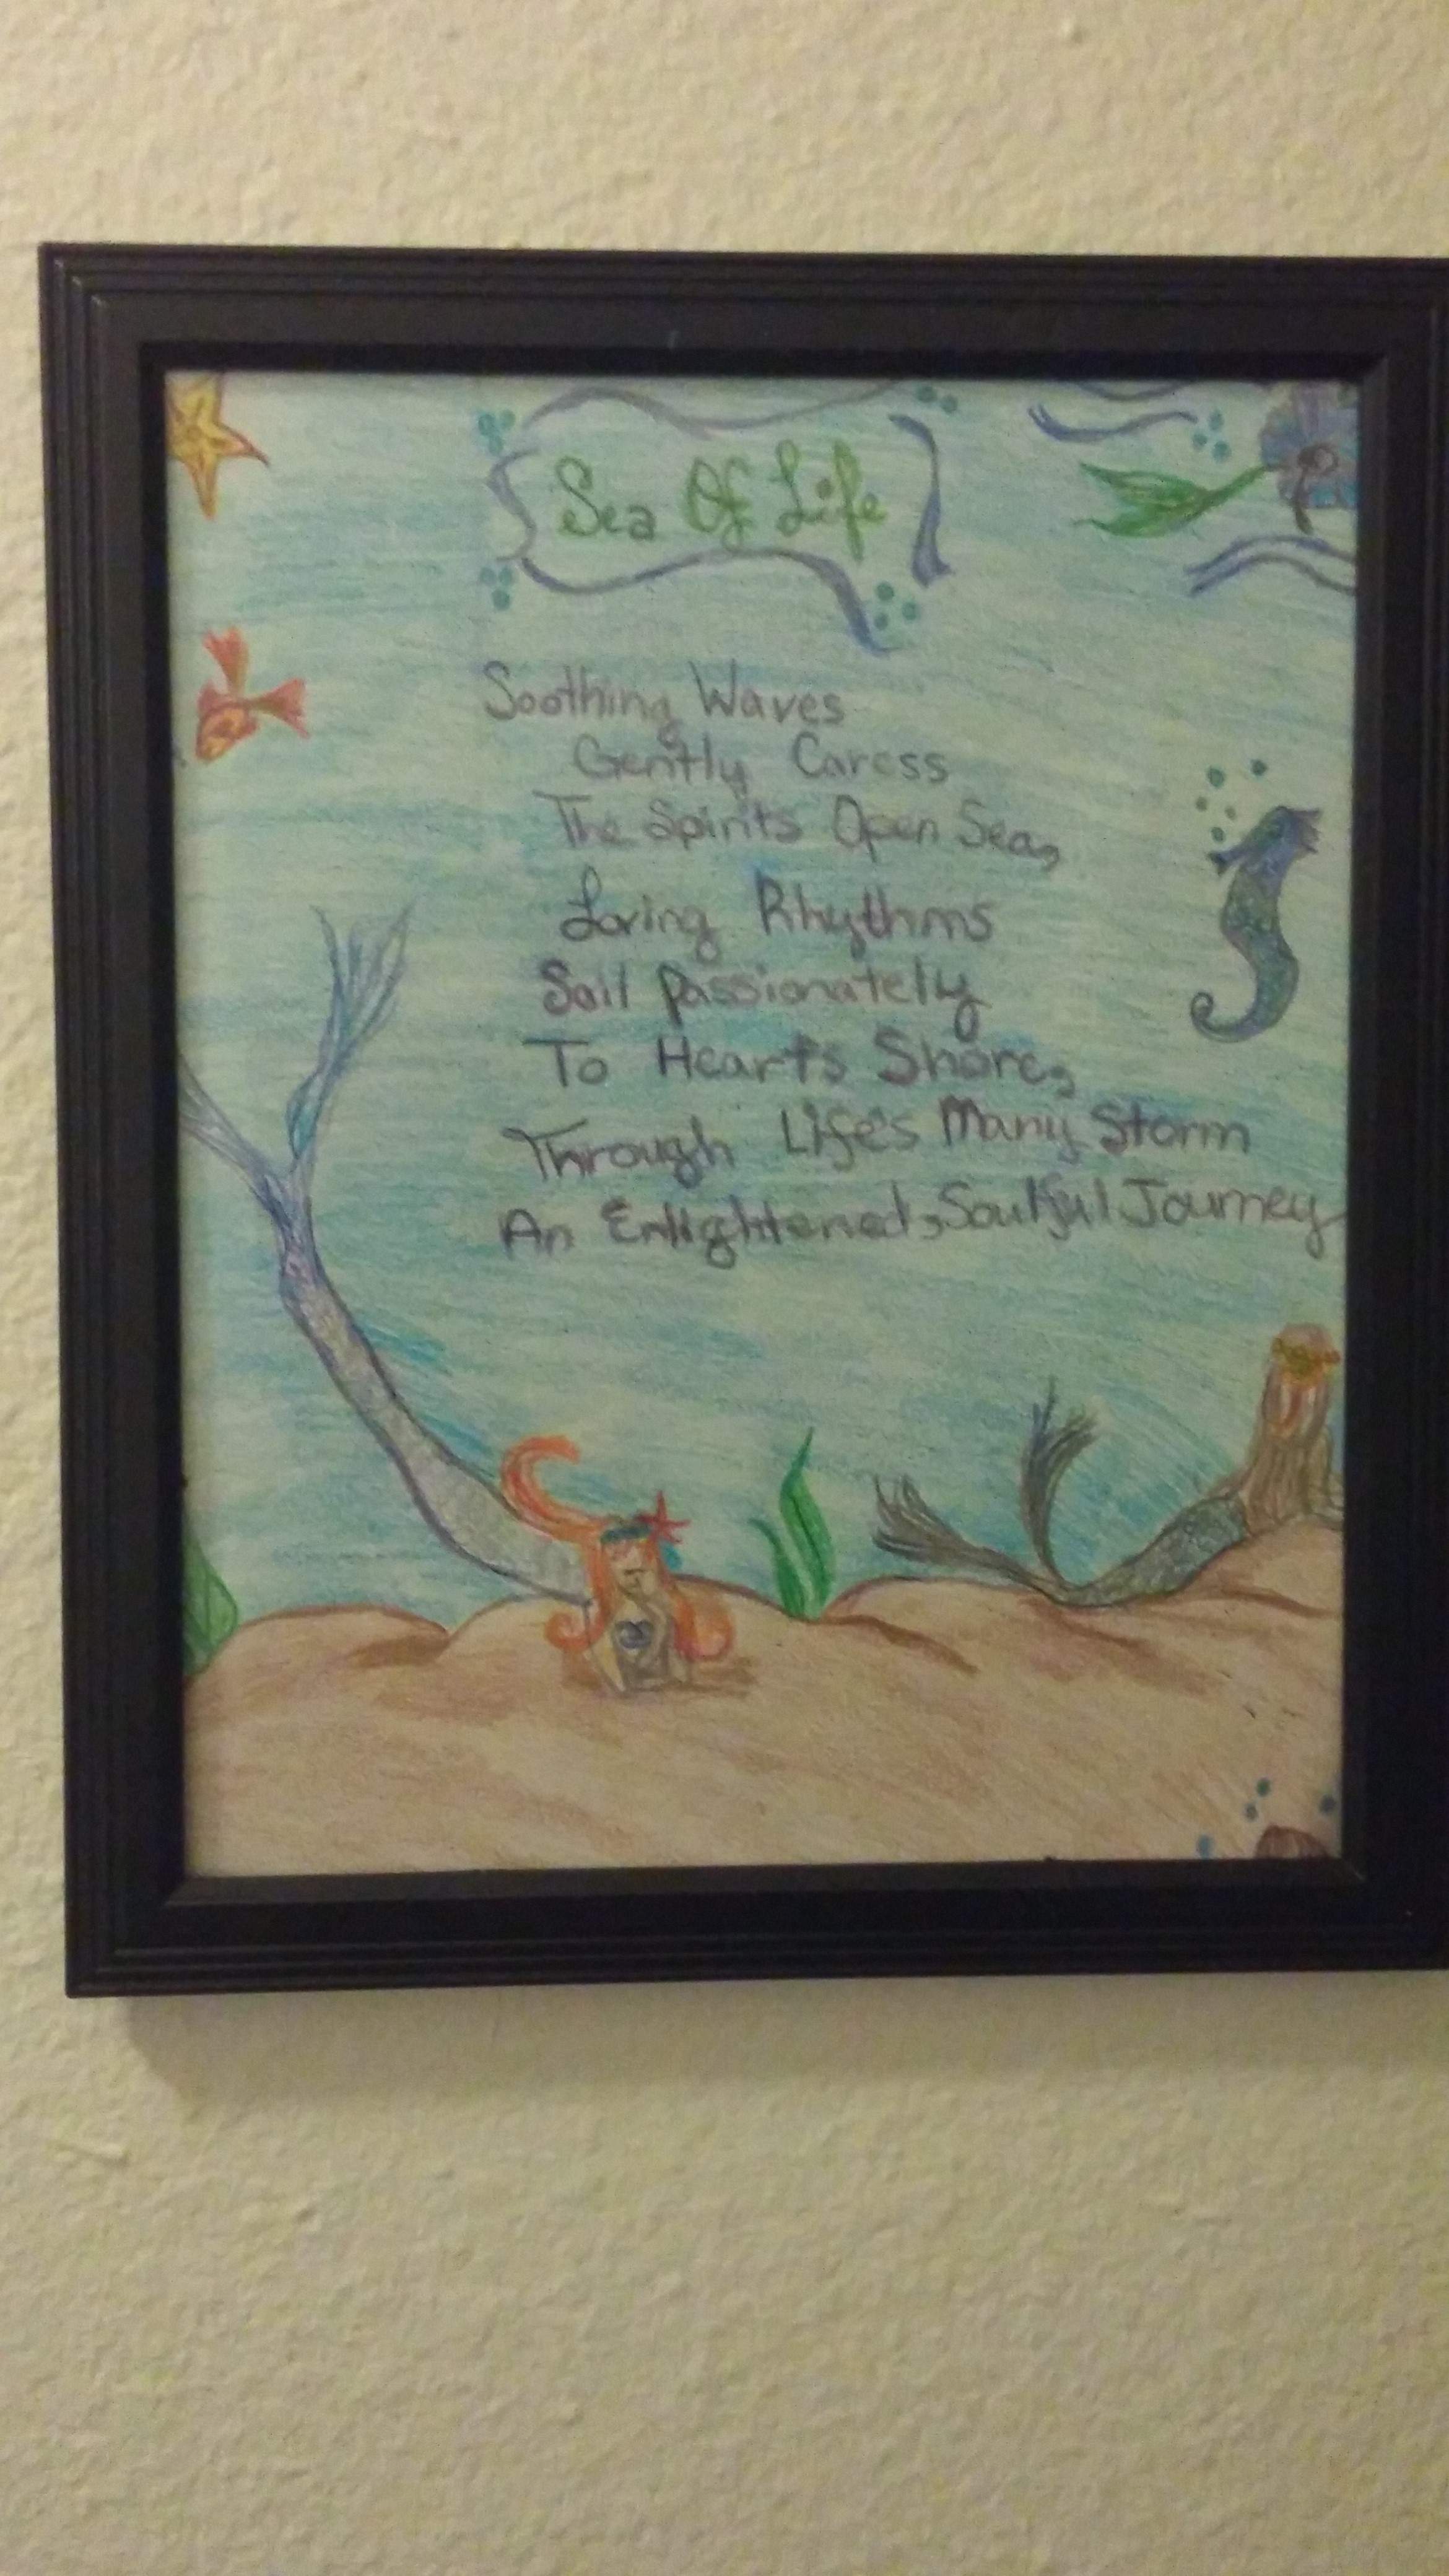 Sea Of Life
Soothing Waves
Gently Caress
The Spirits Open Sea,
Loving Rhythms
Sail Passionately
To Heart's Shore,
Through Life's Many Storm
An Enlightened, Soulful Journey